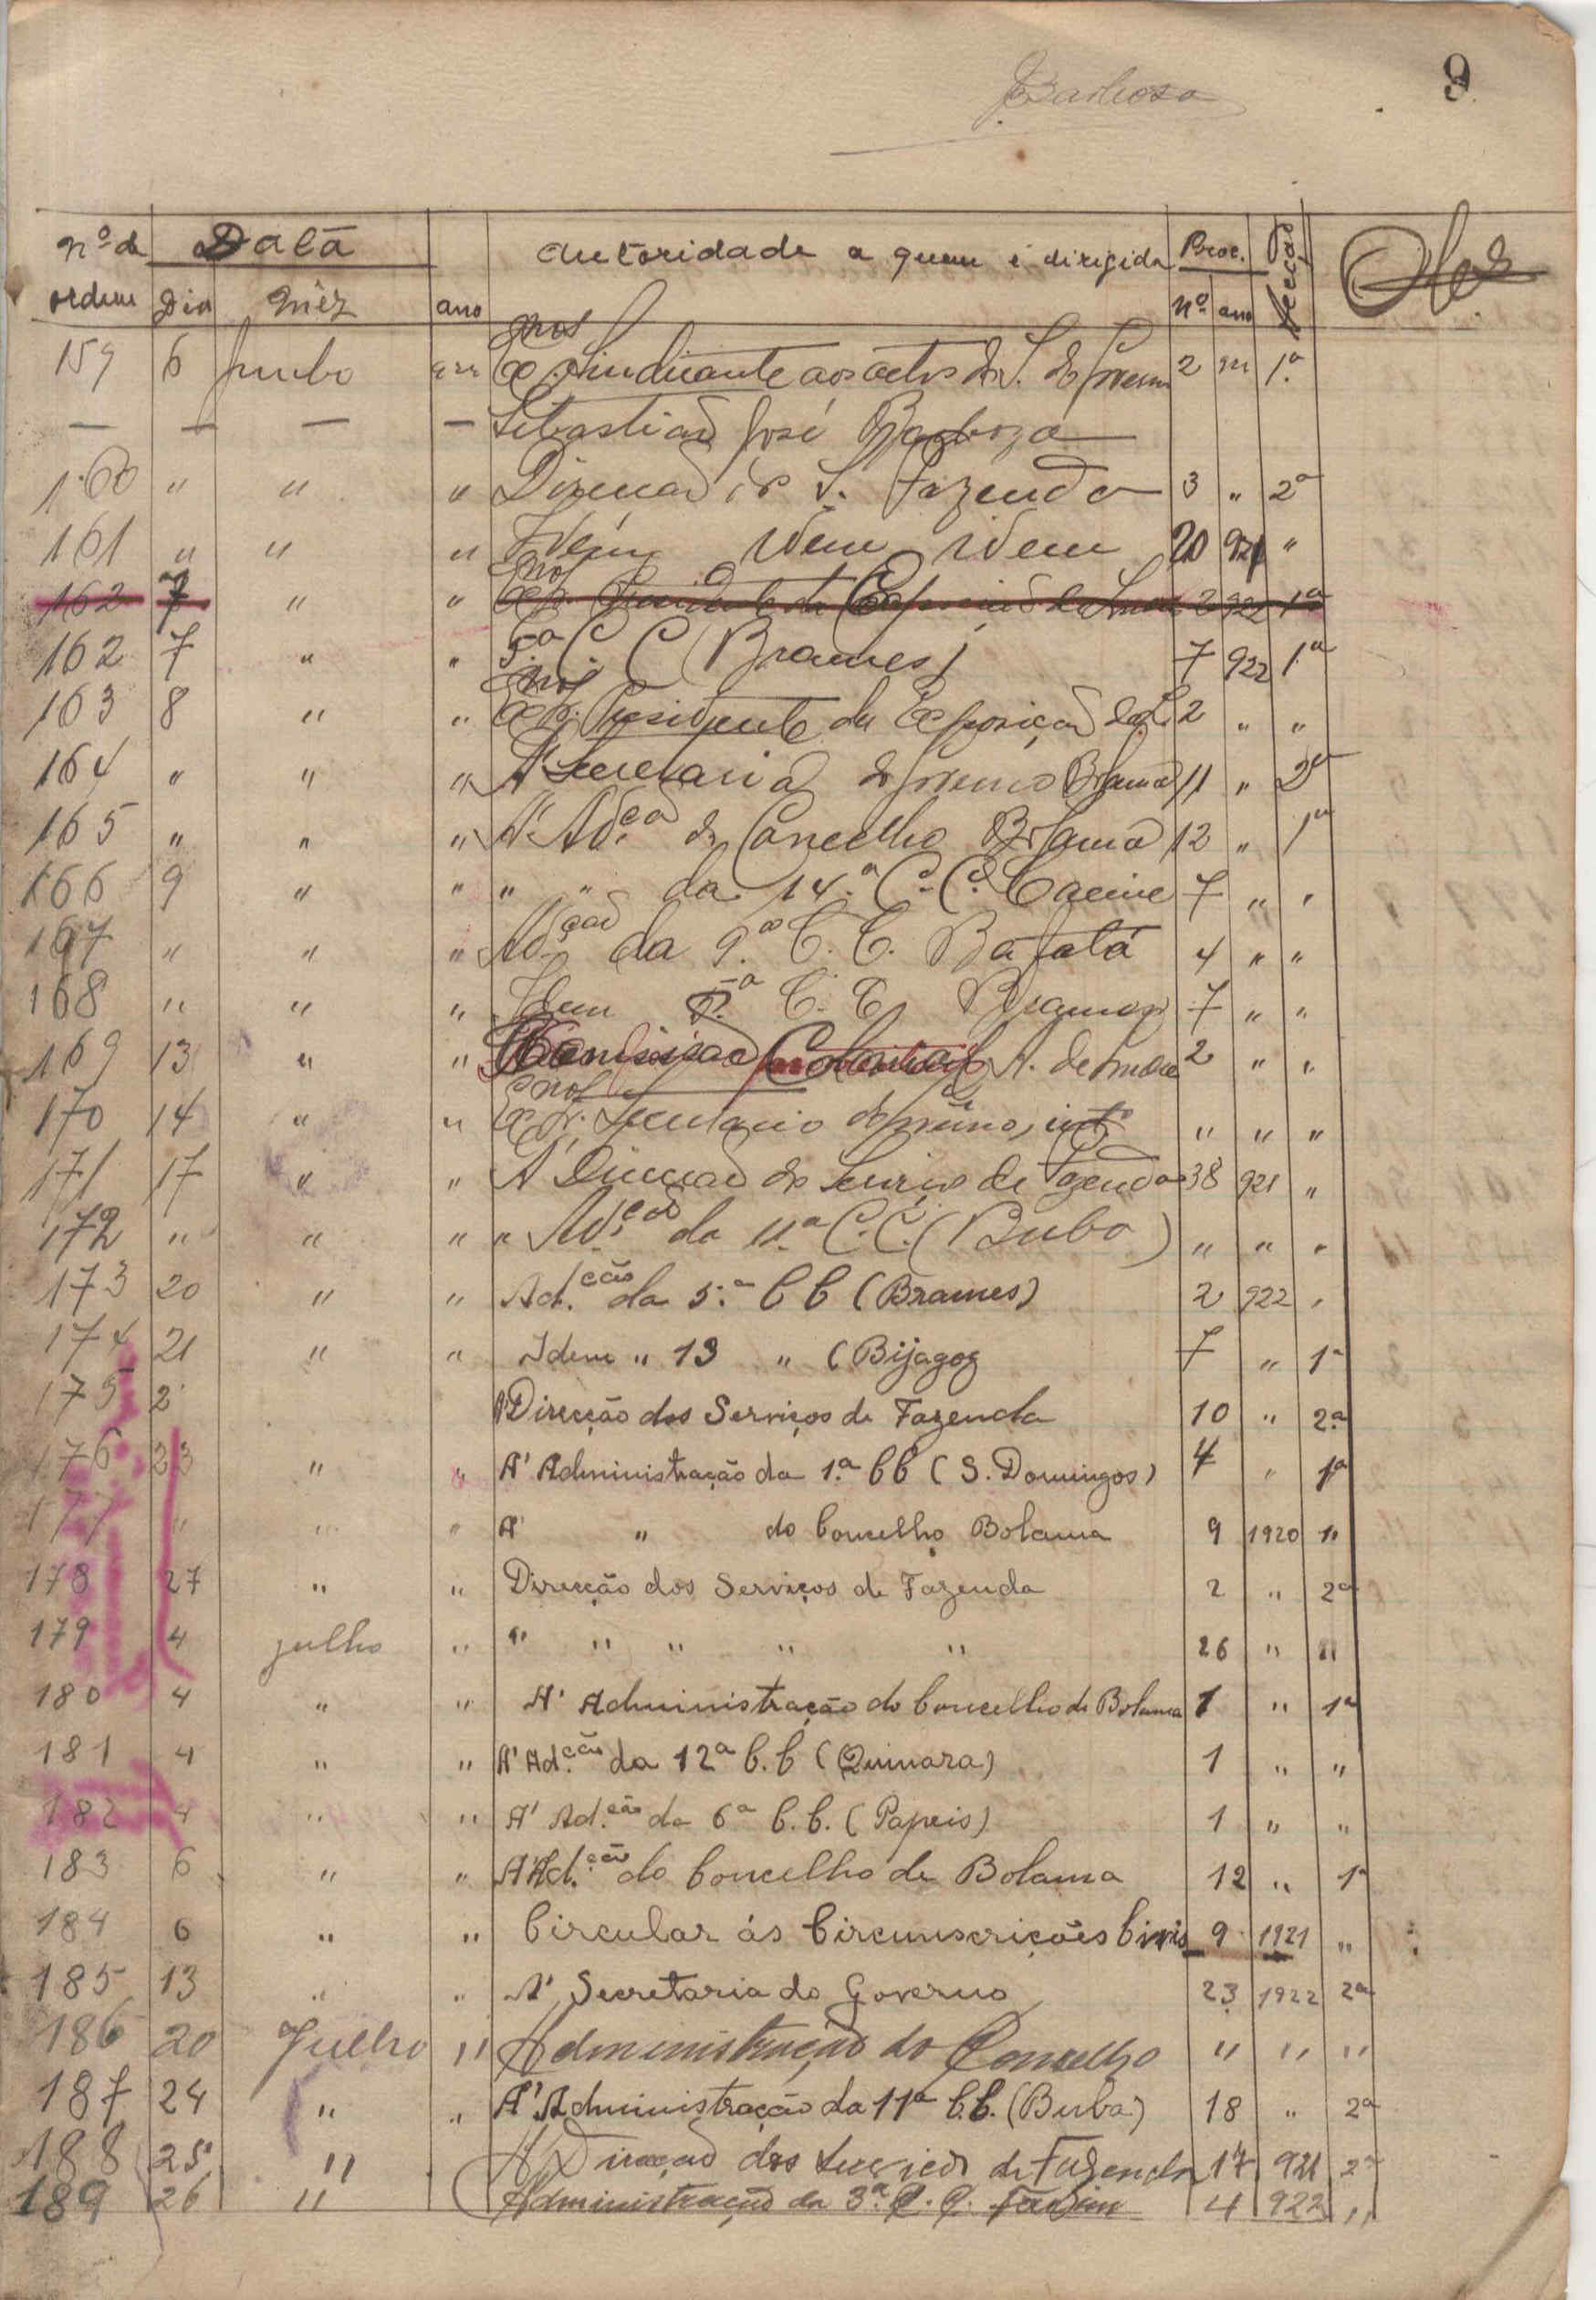 Barbosa
9
nº de Data autoridade a quem é dirigida Proc. Secção Obs
ordem Dia Mêz ano nº ano
159 6 Junho 922 Exmo Sr. Sindicante aos actos do S. do Governo 2 922 1.ª
— — — — Sebastião José Barboza
160 " " " Direcção do S. Fazenda 3 " 2ª
161 " " " Idem idem idem 20 921 "
162 7 " " Exmo Sr. Presidente da Exposição de 2 922 1ª
162 7 " " 5.ª C. C (Brames) 7 922 1.ª
163 8 " " Exmo Sr. Presidente da Exposição de L 2 " "
164 " " " A' Secretaria do Governo Bolama 11 " 2ª
165 " " " A' Adção do Concelho Bolama 12 " 1ª
166 9 " " " " da 14.ª C. C. Cacine 7 " "
167 " " " Adção da 9.ª C. C. Bafatá 4 " "
168 " " " Idem 5.ª C. C. Brames 7 " "
169 13 " " Comissão Colonial A. de 2 " "
170 14 " " Exmo Sr. Secretario do Governo, intº " " "
171 17 " " A' Direcção do Serviço de Fazenda 38 921 "
172 " " " " Adção da 11.ª C. C. (Buba) " " "
173 20 " " Ad.ção da 5.ª C C (Brames) 2 922 "
174 21 " " Idem " 13 " (Bijagoz 7 " 1ª
175 2 A' Direcção dos Serviços de Fazenda 10 " 2.ª
176 23 " " A' Administração da 1.ª C C (S. Domingos) 4 " 1ª
177 " " " A' " do Concelho Bolama 9 1920 1ª
178 27 " " Direcção dos Serviços de Fazenda 2 " 2ª
179 4 julho " " " " " " 26 " "
180 4 " " A' Administração do Concelho de Bolama 1 " 1ª
181 4 " " A' Ad.ção da 12ª C. C (Quinara) 1 " "
182 4 " " A' Ad.ção da 6ª C. C. (Papeis) 1 " "
183 6 " " A' Ad.ção do Concelho de Bolama 12 " 1ª
184 6 " " Circular ás Circunscrições Civis 9 1921 "
185 13 " " A' Secretaria do Governo 23 1922 2ª
186 20 Julho " Administração do Concelho " " "
187 24 " " A' Administração da 11ª C. C. (Buba) 18 " 2ª
188 25 " A' Direcção dos Serviços de Fazenda 17 921 2ª
189 26 " Administração da 3.ª C. C. Farim 4 922 "